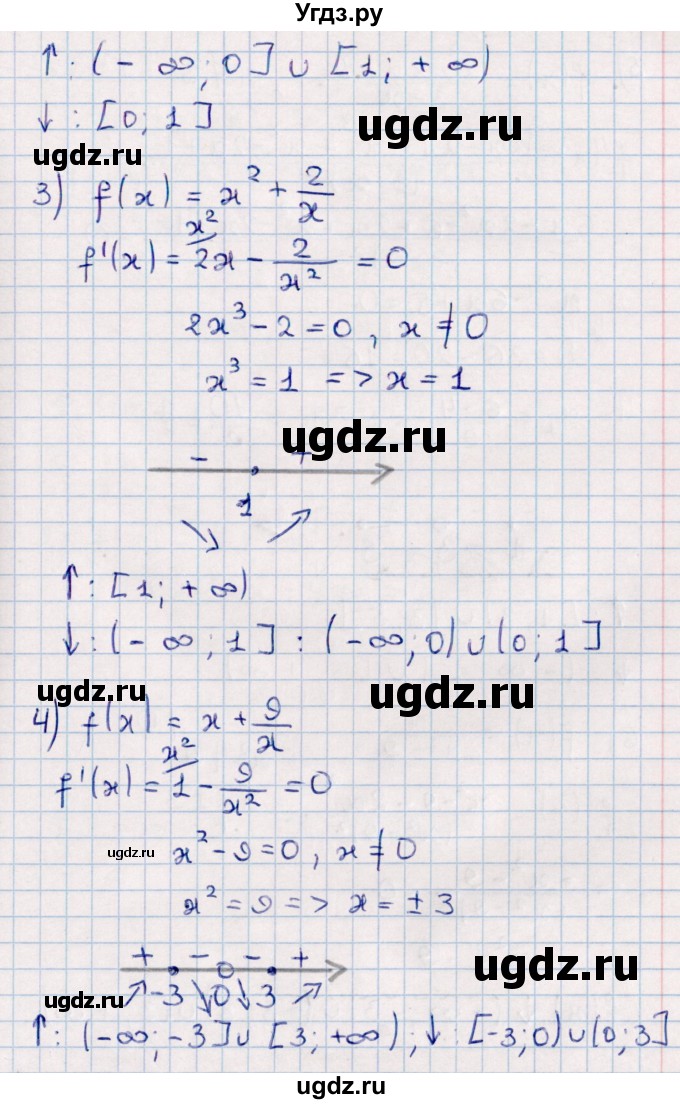 Угдз.ру
↑: (- ∞; 0] ∪ [1; + ∞)
↓: [0; 1]
ugdz.ru
ugdz.ru
3) f(x) = x² + 2/x
x²
f'(x) = 2x - 2/x² = 0
2x³ - 2 = 0, x ≠ 0
x³ = 1 => x = 1
ugdz.ru
- +
1
↘ ↗
↑: [1; + ∞)
↓: (- ∞; 1] : (-∞; 0) ∪ (0; 1]
ugdz.ru
ugdz.ru
4) f(x) = x + 9/x
x²
f'(x) = 1 - 9/x² = 0
ugdz.ru
x² - 9 = 0, x ≠ 0
x² = 9 => x = ± 3
ugdz.ru
+ - - +
↗ -3 ↘ 0 ↘ 3 ↗
ugdz.ru
↑: (-∞; -3] ∪ [3; +∞); ↓: [-3; 0) ∪ (0; 3]
ugdz.ru